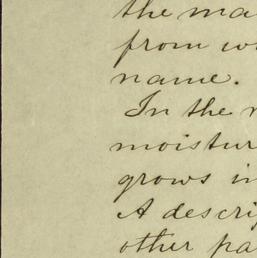 the ma
from w
name.
In the
moistur
grows in
A descri
other pa